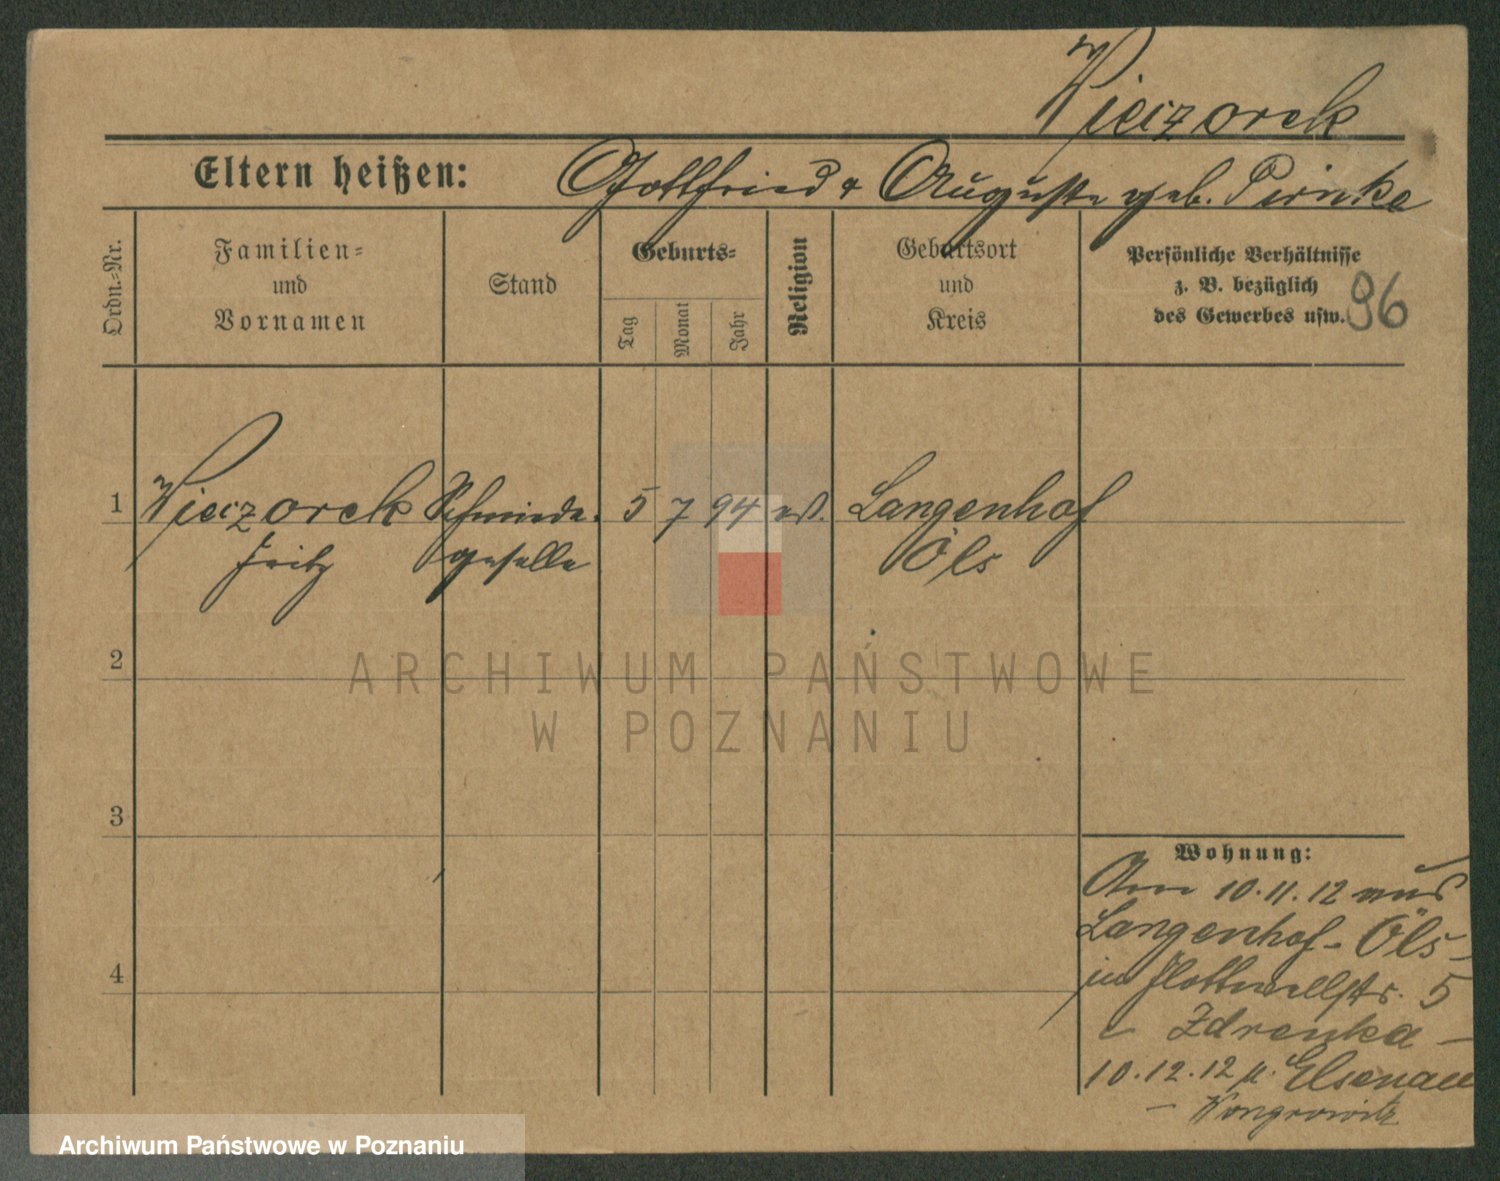 Wieczorek
Eltern heißen: Gottfried & Auguste geb. Pirnke
Ordn.-Nr.
Familien-
und
Vornamen
Stand
Geburts-
Tag
Monat
Jahr
Religion
Geburtsort
und
Kreis
Persönliche Verhältnisse
z. B. bezüglich
des Gewerbes usw.
96
1 Wieczorek Schmiede- 5 7 94 ev. Langenhof
Fritz geselle Öls
2
3
4
Wohnung:
Am 10.11.12 aus
Langenhof - Öls -
in Flottwellstr. 5
Zdrenka -
10.12.12 n. Elsenau
- Wongrowitz
ARCHIWUM PAŃSTWOWE
W POZNANIU
Archiwum Państwowe w Poznaniu